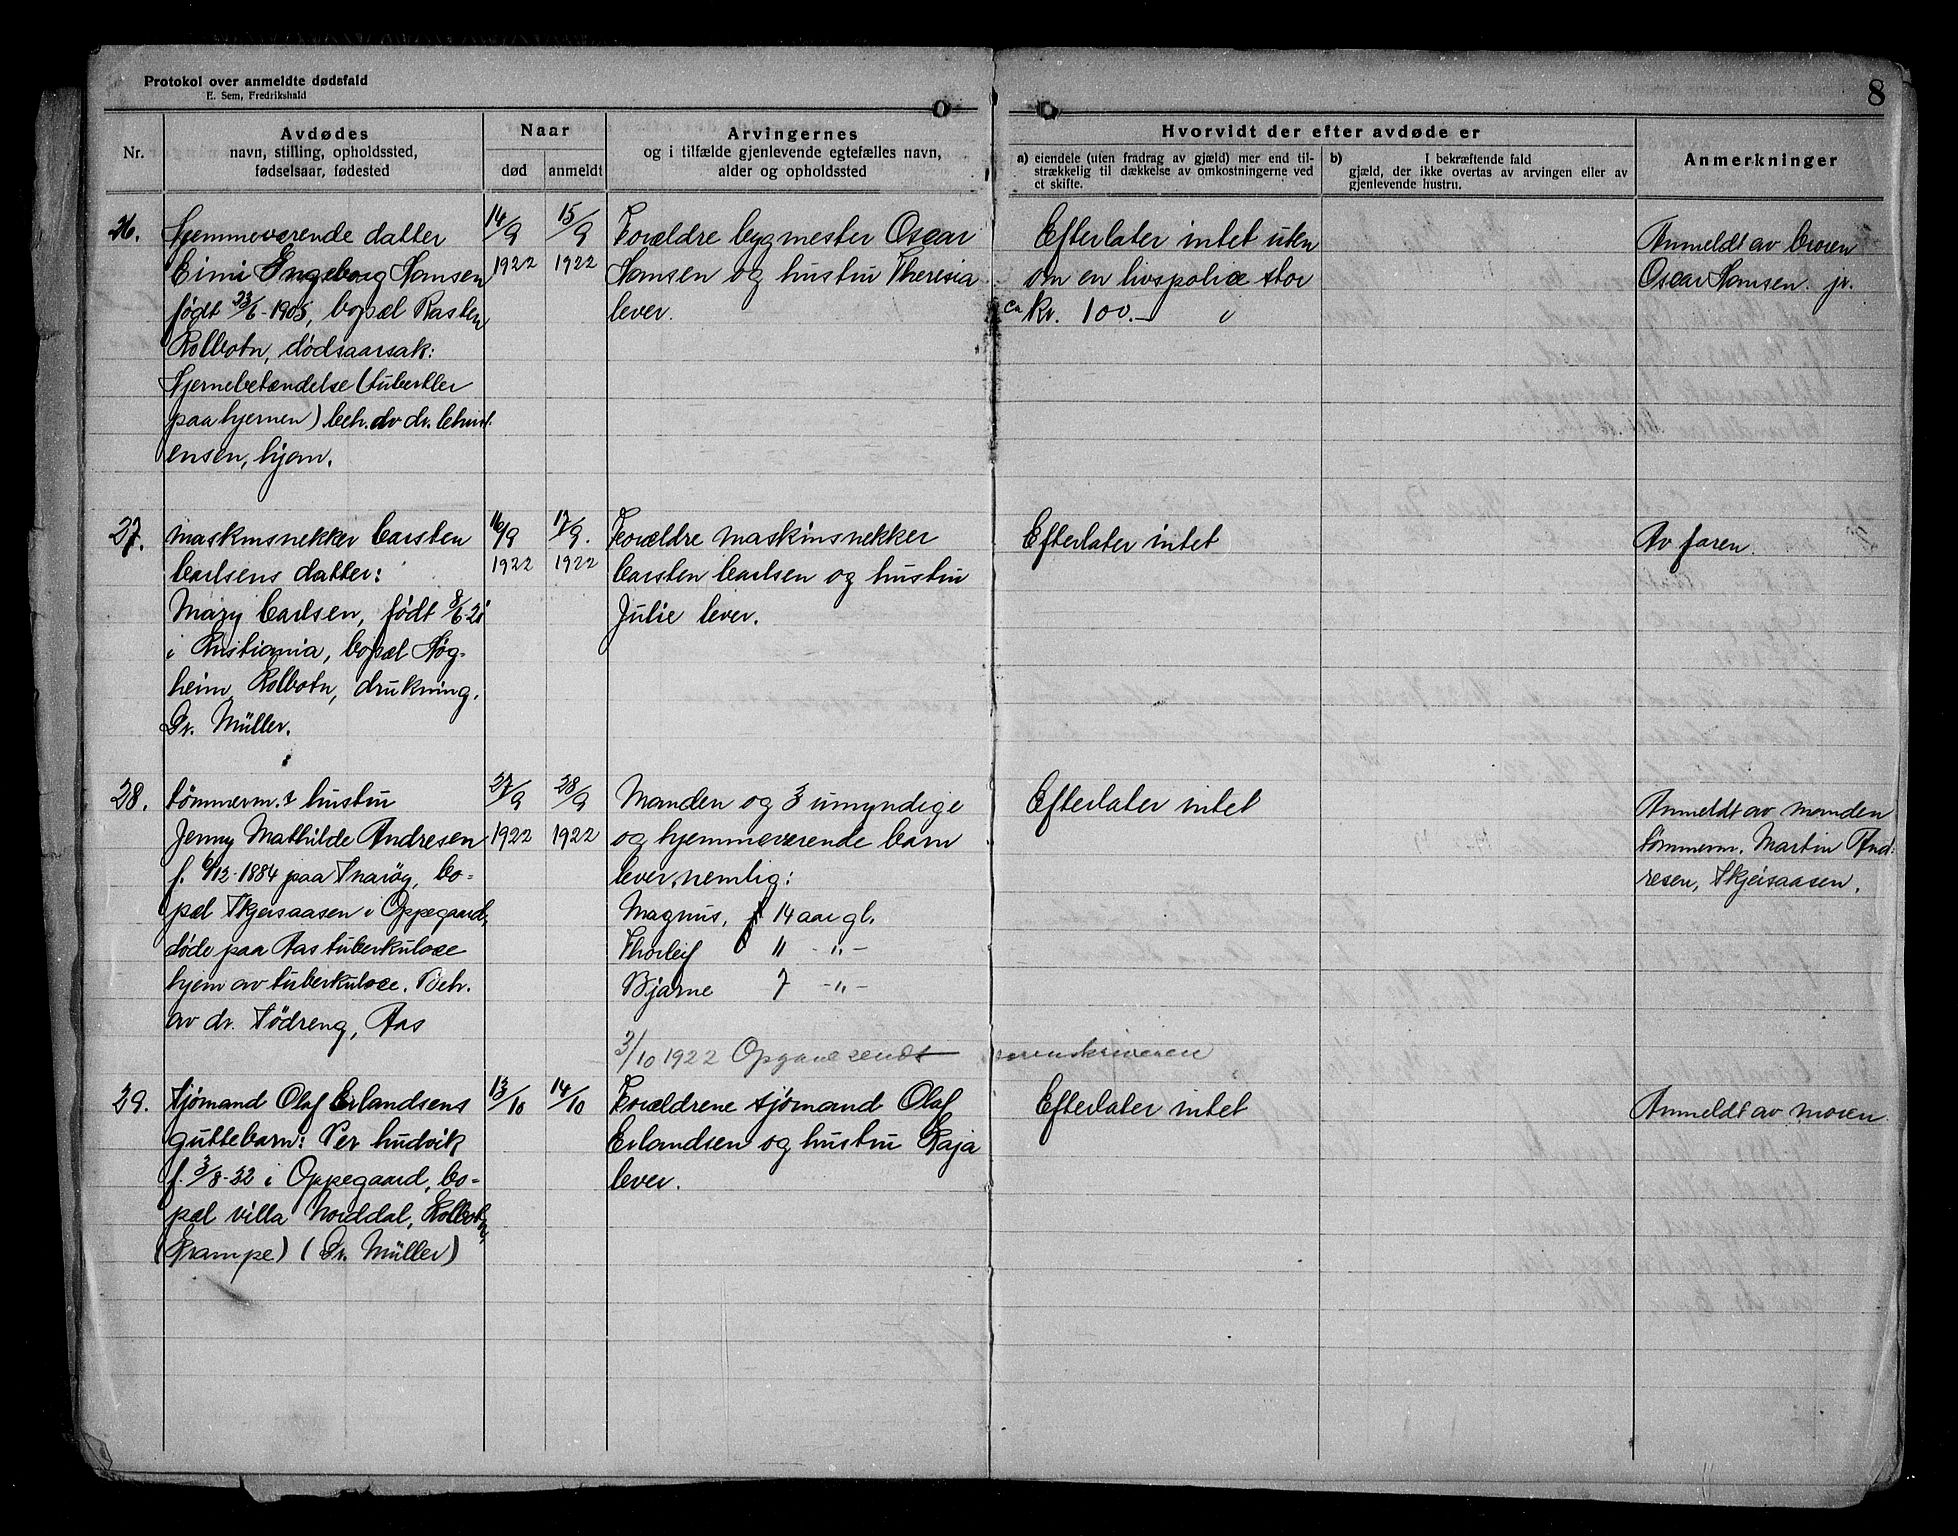 Protokol over anmeldte dødsfald
E. Sem, Fredrikshald
8
Nr.
Avdødes
navn, stilling, opholdssted,
fødselsaar, fødested
Naar
død
anmeldt
Arvingernes
og i tilfælde gjenlevende egtefælles navn,
alder og opholdssted
Hvorvidt der efter avdøde er
a) eiendele (uten fradrag av gjæld) mer end til-
strækkelig til dækkelse av omkostningerne ved
et skifte.
b) I bekræftende fald
gjæld, der ikke overtas av arvingen eller av
gjenlevende hustru.
Anmerkninger
26.
Hjemmeværende datter
Eimi Engeborg Hansen
født 23/6-1905, bopæl Rasten
Kolbotn, dødsaarsak:
Hjernebetændelse (tuberkler
paa hjernen) beh. av dr. Christ-
ensen, hjem.
14/9
1922
15/9
1922
Forældre bygmester Oscar
Hansen og hustru Theresia
lever.
Efterlater intet uten
om en livspolice stor
ca kr. 100.-
Anmeldt av broren
Oscar Hansen jr.
27.
Maskinsnekker Carsten
Carlsens datter:
Mary Carlsen, født 8/6-21
i Kristiania, bopæl Høg-
heim, Kolbotn, drukning.
Dr. Müller.
16/9
1922
17/9.
1922
Forældre maskinsnekker
Carsten Carlsen og hustru
Julie lever.
Efterlater intet
Av faren.
28.
Tømmerm.s hustru
Jenny Mathilde Andresen
f. 6/12-1884 paa Snarøy, bo-
pæl Skjeisaasen i Oppegaard,
døde paa Aas tuberkulose
hjem av tuberkulose. Beh.
av dr. Sødreng, Aas
27/9
1922
28/9
1922
Manden og 3 umyndige
og hjemmeværende barn
lever, nemlig:
Magnus, 14 aar gl.
Thorleif 11 -"-
Bjarne 7 -"-
3/10 1922 Opgave sendt sorenskriveren
Efterlater intet
Anmeldt av manden
tømmerm. Martin And-
resen, Skjeisaasen.
29.
Sjømand Olaf Erlandsens
guttebarn: Per Ludvik
f. 3/8-22 i Oppegaard, bo-
pæl villa Norddal, Kolbotn,
(Krampe) (Dr. Müller)
13/10
14/10
Forældrene sjømand Olaf
Erlandsen og hustru Kaja
lever.
Efterlater intet
Anmeldt av moren.